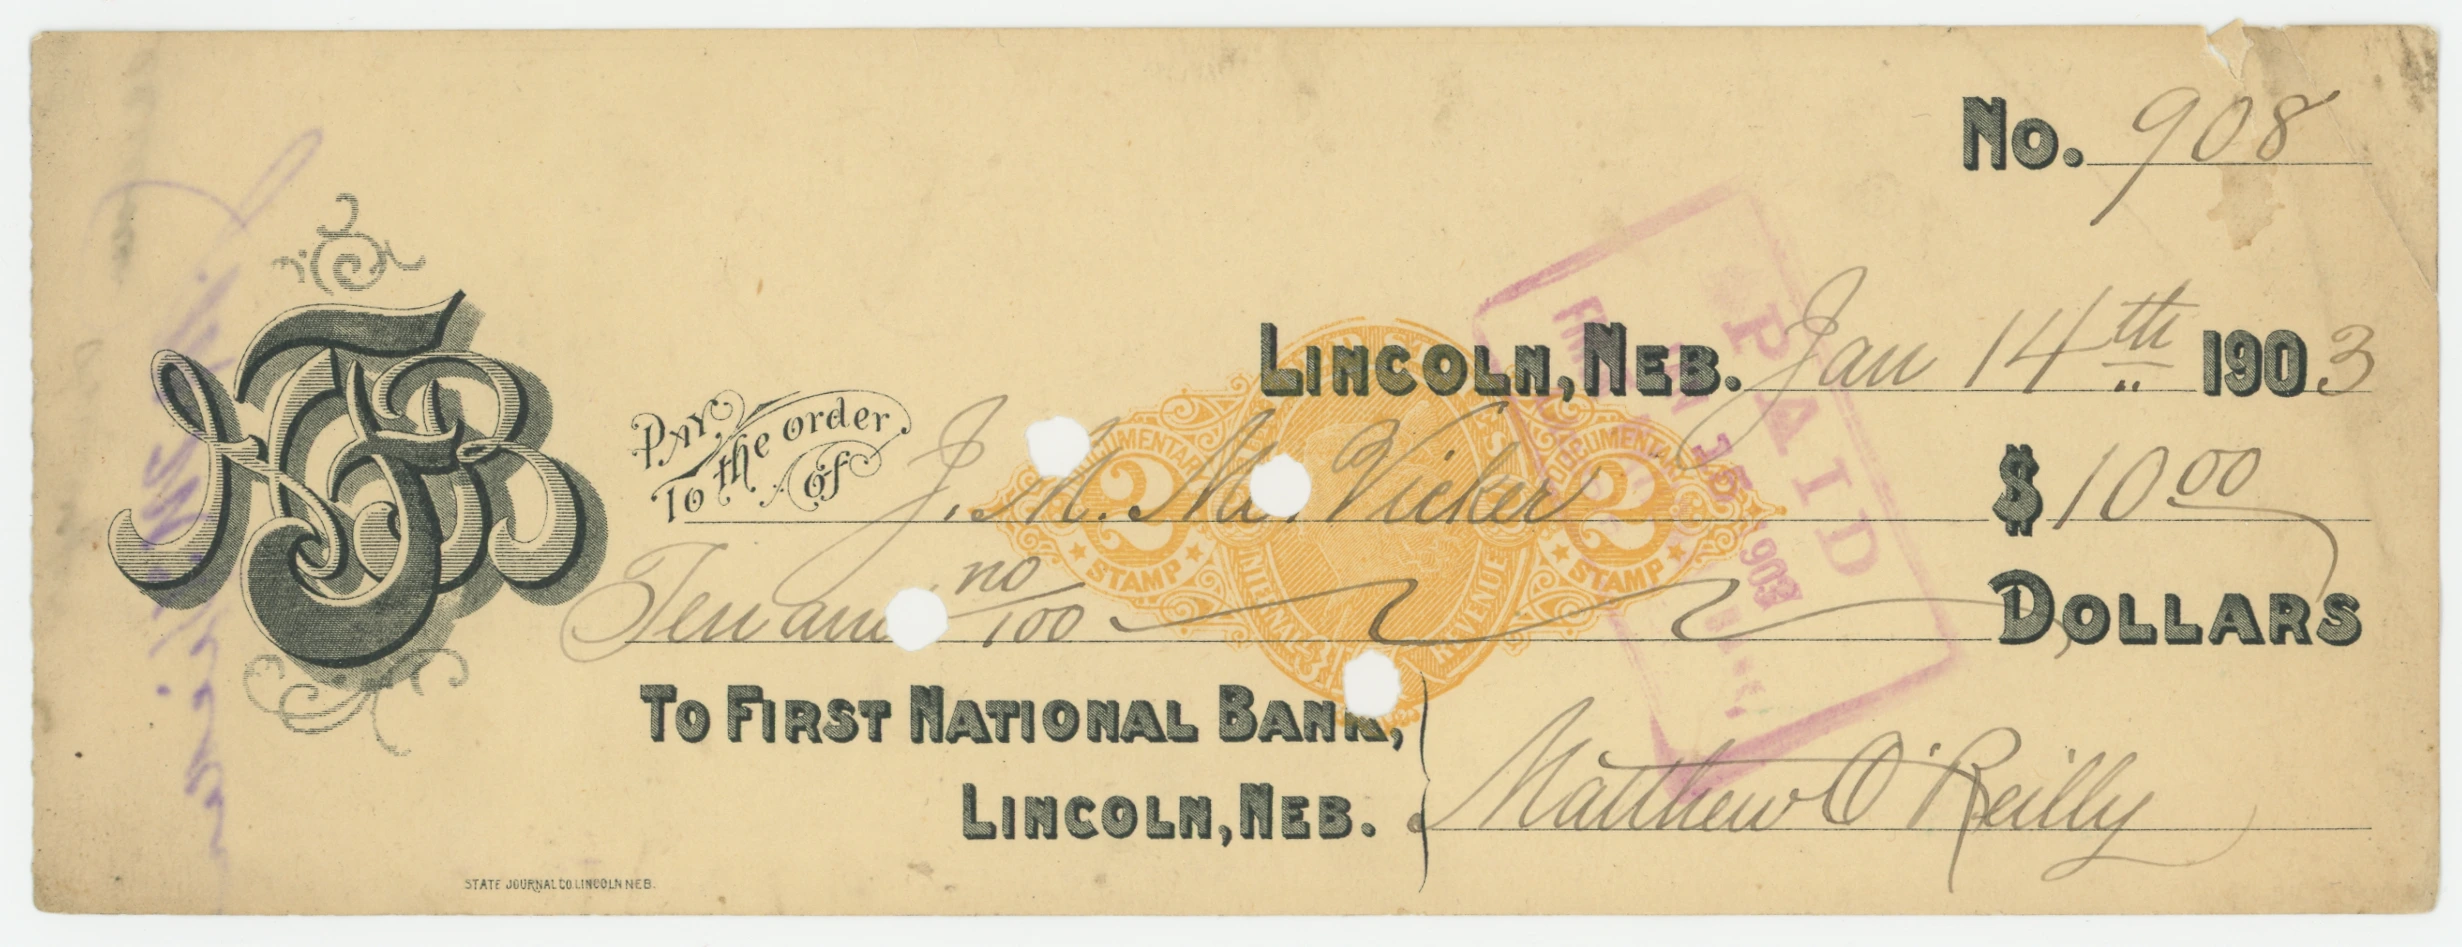 No. 908
LINCOLN, NEB. Jan 14th 1903
PAY
To the order
of J. M. Mc Vicker $ 10 00
Ten and no/100 DOLLARS
TO FIRST NATIONAL BANK,
LINCOLN, NEB.
Matthew O'Reilly
STATE JOURNAL CO. LINCOLN NEB.
DOCUMENTARY
2 2
STAMP STAMP
INTERNAL REVENUE
PAID
JAN 15 1903